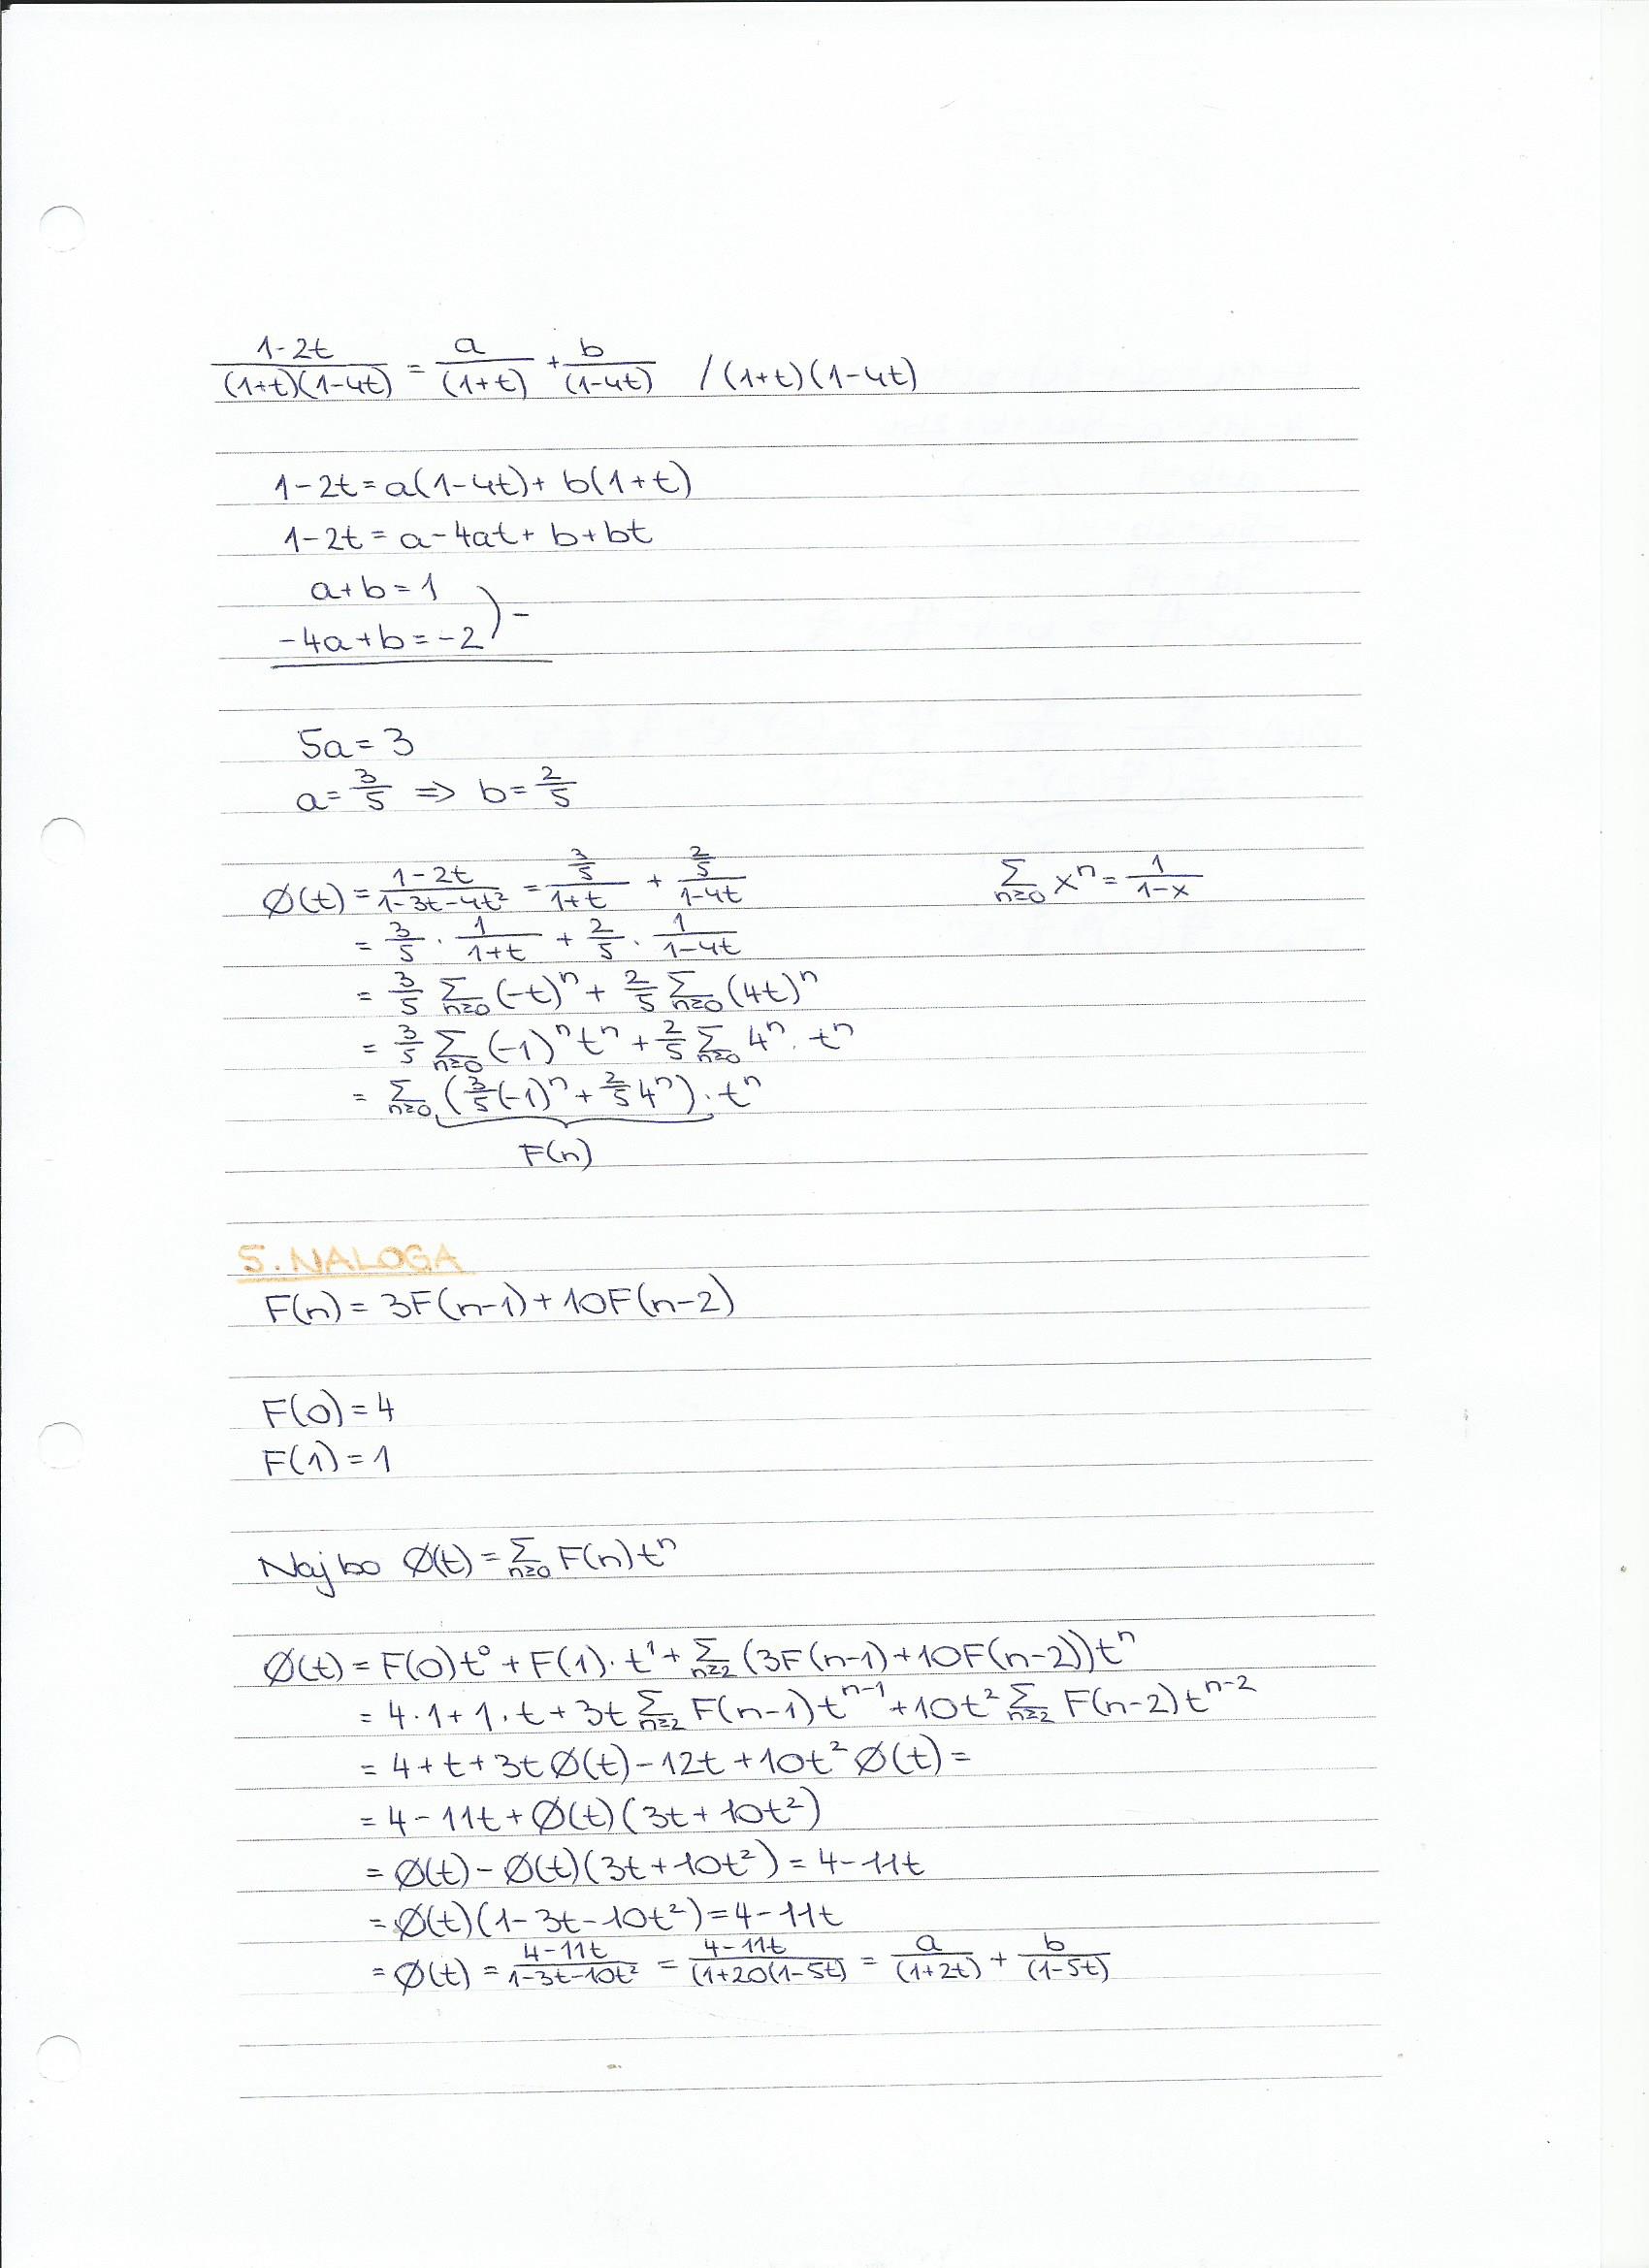 (1-2t)/((1+t)(1-4t)) = a/(1+t) + b/(1-4t) /(1+t)(1-4t)
1-2t = a(1-4t) + b(1+t)
1-2t = a-4at+b+bt
a+b=1
-4a+b=-2 ) -
5a=3
a=3/5 ⇒ b=2/5
Ø(t) = (1-2t)/(1-3t-4t²) = (3/5)/(1+t) + (2/5)/(1-4t) ∑_{n≥0} xⁿ = 1/(1-x)
= 3/5 · 1/(1+t) + 2/5 · 1/(1-4t)
= 3/5 ∑_{n≥0} (-t)ⁿ + 2/5 ∑_{n≥0} (4t)ⁿ
= 3/5 ∑_{n≥0} (-1)ⁿ tⁿ + 2/5 ∑_{n≥0} 4ⁿ · tⁿ
= ∑_{n≥0} (3/5(-1)ⁿ + 2/5 4ⁿ) · tⁿ
F(n)
5. NALOGA
F(n) = 3F(n-1) + 10F(n-2)
F(0) = 4
F(1) = 1
Naj bo Ø(t) = ∑_{n≥0} F(n)tⁿ
Ø(t) = F(0)t⁰ + F(1)·t¹ + ∑_{n≥2} (3F(n-1)+10F(n-2))tⁿ
= 4·1+1·t+3t ∑_{n≥2} F(n-1)tⁿ⁻¹ + 10t² ∑_{n≥2} F(n-2)tⁿ⁻²
= 4+t+3tØ(t)-12t+10t²Ø(t) =
= 4-11t+Ø(t)(3t+10t²)
= Ø(t)-Ø(t)(3t+10t²) = 4-11t
= Ø(t)(1-3t-10t²) = 4-11t
= Ø(t) = (4-11t)/(1-3t-10t²) = (4-11t)/((1+20(1-5t) = a/(1+2t) + b/(1-5t)